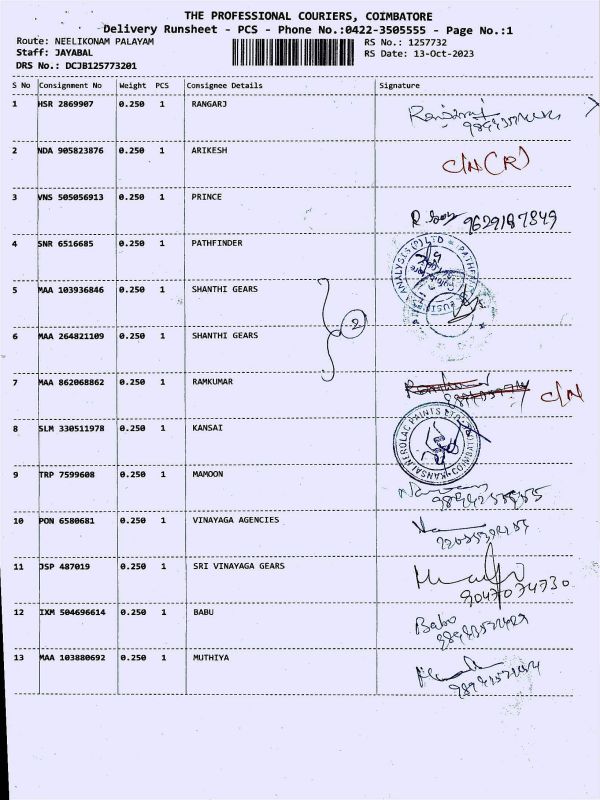 THE PROFESSIONAL COURIERS, COIMBATORE
Delivery Runsheet - PCS - Phone No.:0422-3505555 - Page No.:1
Route: NEELIKONAM PALAYAM RS No.: 1257732
Staff: JAYABAL RS Date: 13-Oct-2023
DRS No.: DCJB125773201
S No Consignment No Weight PCS Consignee Details Signature
1 HSR 2869907 0.250 1 RANGARJ
2 NDA 905823876 0.250 1 ARIKESH C/N (R)
3 VNS 505056913 0.250 1 PRINCE 9629187849
4 SNR 6516685 0.250 1 PATHFINDER
5 MAA 103936846 0.250 1 SHANTHI GEARS
2
6 MAA 264821109 0.250 1 SHANTHI GEARS
7 MAA 862068862 0.250 1 RAMKUMAR C/N
8 SLM 330511978 0.250 1 KANSAI KANSAI NEROLAC PAINTS LTD
9 TRP 7599608 0.250 1 MAMOON
10 PON 6580681 0.250 1 VINAYAGA AGENCIES
11 JSP 487019 0.250 1 SRI VINAYAGA GEARS 9047074730
12 IXM 504696614 0.250 1 BABU Babo
13 MAA 103880692 0.250 1 MUTHIYA